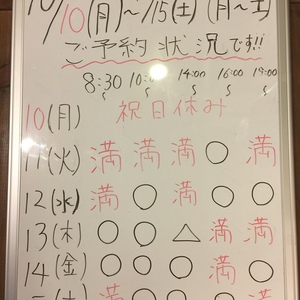 10/10(月)~15(土)(月~土)
ご予約状況です!!
8:30 10:00 14:00 16:00 19:00
10(月) 祝日休み
11(火) 満 満 満 ○ 満
12(水) 満 ○ 満 ○ ○
13(木) ○ ○ △ 満 満
14(金) ○ ○ ○ 満 ○